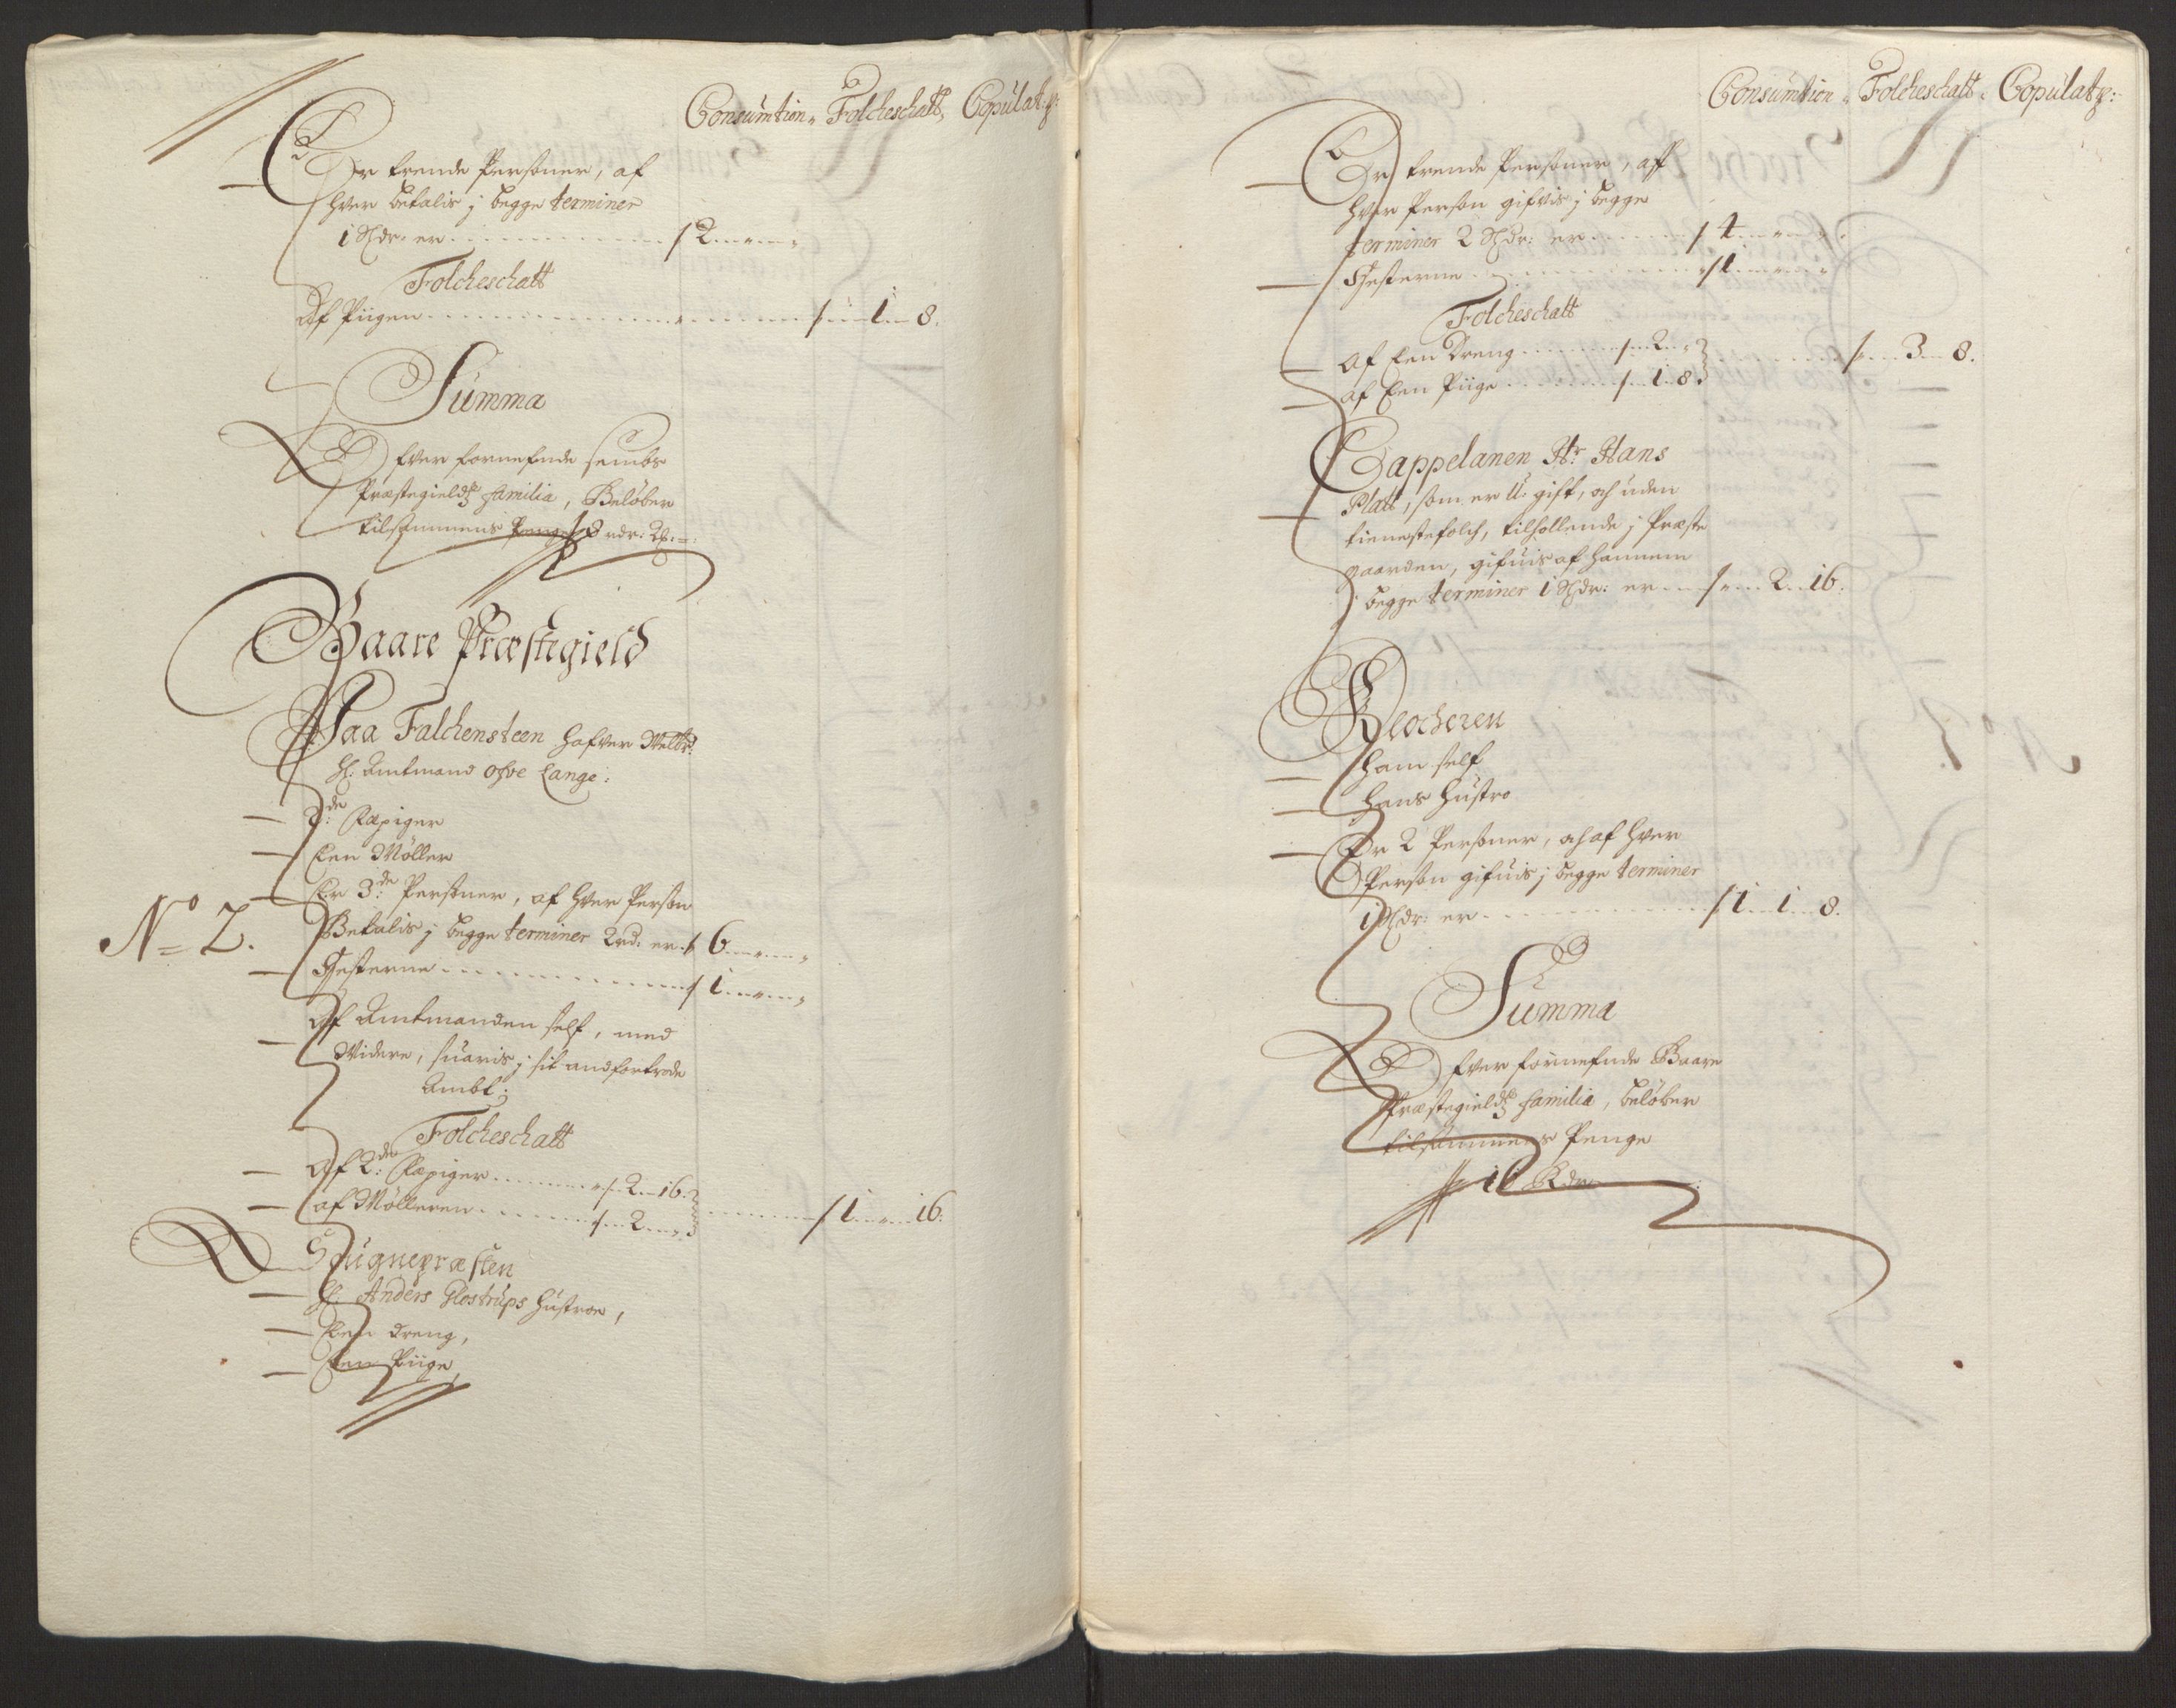 Consumtion, Folcheschatt, Copulat:
Er trende Personer, af
hver betalis j begge terminer
1 Rdr: er 2
Folcheschatt
Af Piigen 1 8.
Summa
Ofver fornefnde sembs
Præstegields familia, Beløber
tilsammens Penge 8 rdr: 2
Baare Præstegield
Paa Falchensteen hafver Welb:
H: Amtmand Ofve Lange:
2de: Piger
Een Møller
Er 3de: Personer, af hver Person
No 2.
Betalis j begge terminer 2 rd: er 6
Gjesterne 1
Af Amtmanden self, med
Videre, suaris j sit andfortrode
Ambt;
Folcheschatt
Af 2de: Piger 2 16
af Mølleren 2
1 16:
Sougnepræsten
H: Anders Glostrups Hustroe,
Een Dreng,
Een Piige,
Consumtion, Folcheschatt, Copulat:
Er trende Personer, aff
hver Person gifvis j begge
terminer 2 Rdr: er 4
Gjesterne 1
Folcheschatt
Af Een Dreng 2
af Een Piige 1 8
3 8.
Cappelanen Hr Hans
Platt, som er U-gift, och uden
tienestefolch, tilhollende j Præste
gaarden, gifuis af hannem
j begge terminer 1 Rdr: er 2 16.
Klocheren
ham self
hans Hustro
Er 2 Personer, och af hver
Person gifuis j begge terminer
1 Rdr: er 1 1 8.
Summa
Ofver fornefnde Baare
Præstegields familia, beløber
tilsammens Penge
16 Rdr